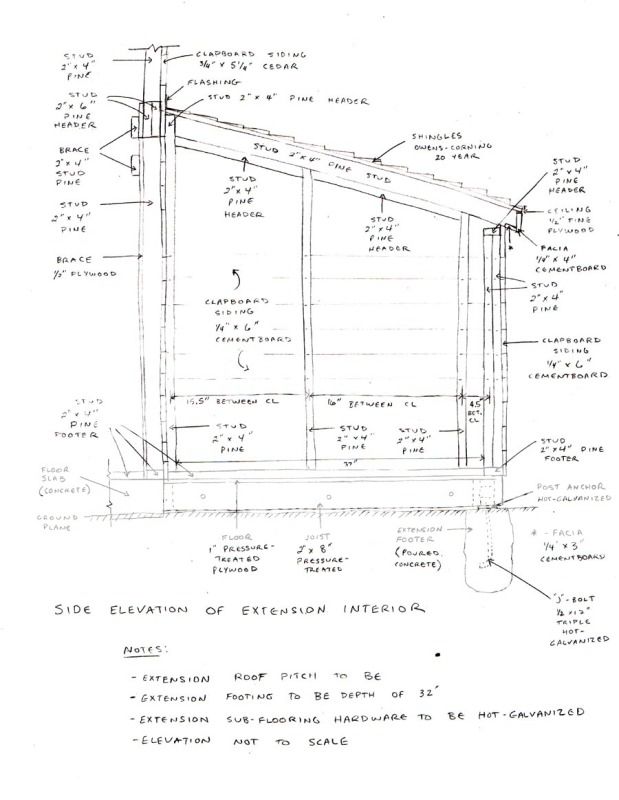 STUD
2" x 4"
PINE
CLAPBOARD SIDING
3/4" x 5 1/4" CEDAR
FLASHING
STUD 2" x 4" PINE HEADER
STUD
2" x 6"
PINE
HEADER
BRACE
2" x 4"
STUD
PINE
STUD
2" x 4"
PINE
BRACE
1/2" PLYWOOD
SHINGLES
OWENS-CORNING
20 YEAR
STUD 2" x 4" PINE STUD
STUD
2" x 4"
PINE
HEADER
STUD
2" x 4"
PINE
HEADER
STUD
2" x 4"
PINE
HEADER
CEILING
1/2" PINE
PLYWOOD
*
FACIA
1/4" x 4"
CEMENTBOARD
STUD
2" x 4"
PINE
CLAPBOARD
SIDING
1/4" x 6"
CEMENTBOARD
CLAPBOARD
SIDING
1/4" x 6"
CEMENTBOARD
15.5" BETWEEN CL
16" BETWEEN CL
4.5
BET.
CL
STUD
2" x 4"
PINE
FOOTER
STUD
2" x 4"
PINE
STUD
2" x 4"
PINE
STUD
2" x 4"
PINE
37"
STUD
2" x 4" PINE
FOOTER
FLOOR
SLAB
(CONCRETE)
GROUND
PLANE
POST ANCHOR
HOT-GALVANIZED
FLOOR
1" PRESSURE-
TREATED
PLYWOOD
JOIST
2" x 8"
PRESSURE-
TREATED
EXTENSION
FOOTER
(POURED
CONCRETE)
* - FACIA
1/4" x 3"
CEMENTBOARD
"J"-BOLT
1/2 x 12"
TRIPLE
HOT-
GALVANIZED
SIDE ELEVATION OF EXTENSION INTERIOR
NOTES:
- EXTENSION ROOF PITCH TO BE
- EXTENSION FOOTING TO BE DEPTH OF 32"
- EXTENSION SUB-FLOORING HARDWARE TO BE HOT-GALVANIZED
- ELEVATION NOT TO SCALE